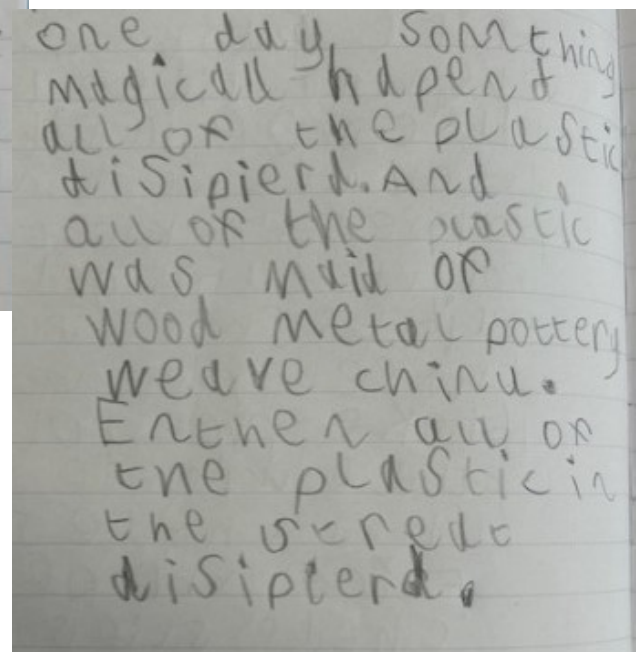 one day, somthing
magicall hapend
all of the plastic
disipierd. And
all of the plastic
was maid of
wood metal pottery
weave china.
Enthen all of
the plastic in
the streat
disipierd.